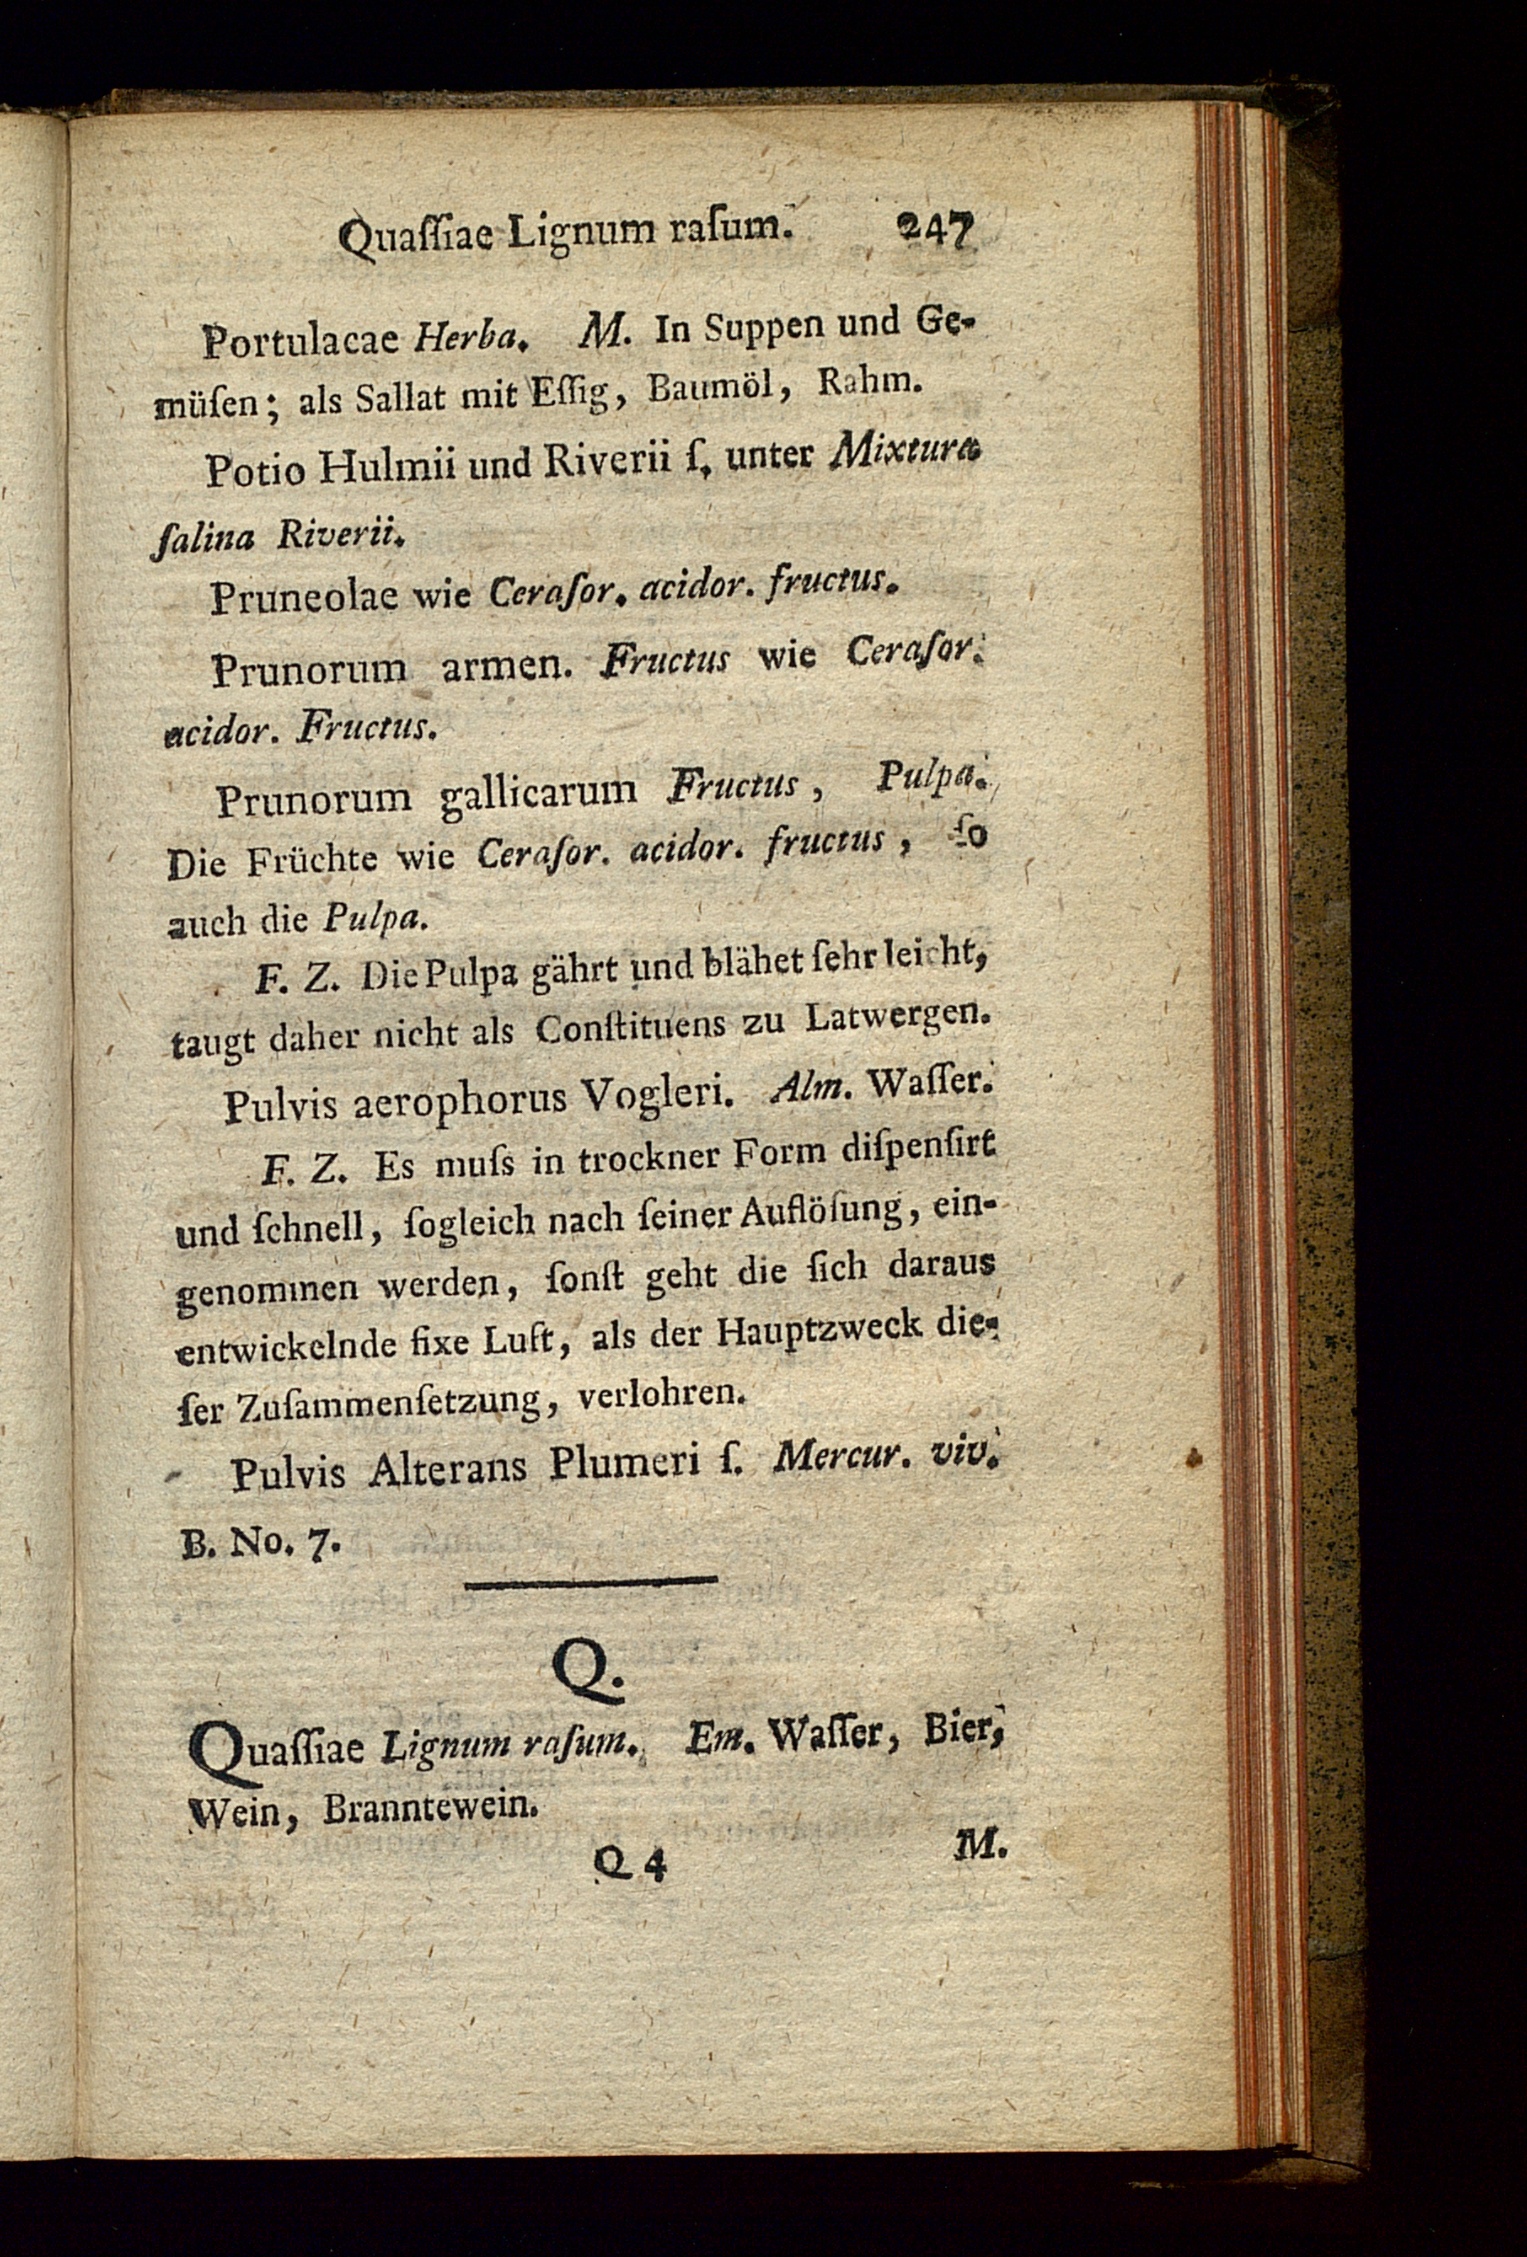 Quaſſiae Lignum raſum. 247
Portulacae Herba. M. In Suppen und Ge-
müſen; als Sallat mit Eſſig, Baumöl, Rahm.
Potio Hulmii und Riverii ſ. unter Mixtura
ſalina Riverii.
Pruneolae wie Ceraſor. acidor. fructus.
Prunorum armen. Fructus wie Ceraſor.
acidor. Fructus.
Prunorum gallicarum Fructus, Pulpa.
Die Früchte wie Ceraſor. acidor. fructus, ſo
auch die Pulpa.
F. Z. Die Pulpa gährt und blähet ſehr leicht,
taugt daher nicht als Conſtituens zu Latwergen.
Pulvis aerophorus Vogleri. Alm. Waſſer.
F. Z. Es muſs in trockner Form diſpenſirt
und ſchnell, ſogleich nach ſeiner Auflöſung, ein-
genommen werden, ſonſt geht die ſich daraus
entwickelnde fixe Luft, als der Hauptzweck die-
ſer Zuſammenſetzung, verlohren.
Pulvis Alterans Plumeri ſ. Mercur. viv.
B. No. 7.
Q.
Quaſſiae Lignum raſum. Em. Waſſer, Bier,
Wein, Branntewein.
Q 4 M.